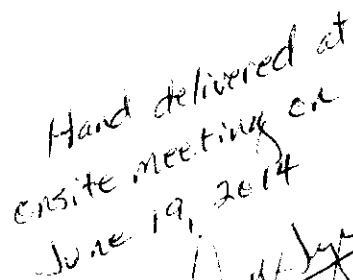 Hand delivered at
onsite meeting on
June 19, 2014